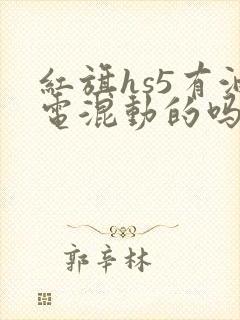 紅旗hs5有油
電混動的嗎
郭辛林